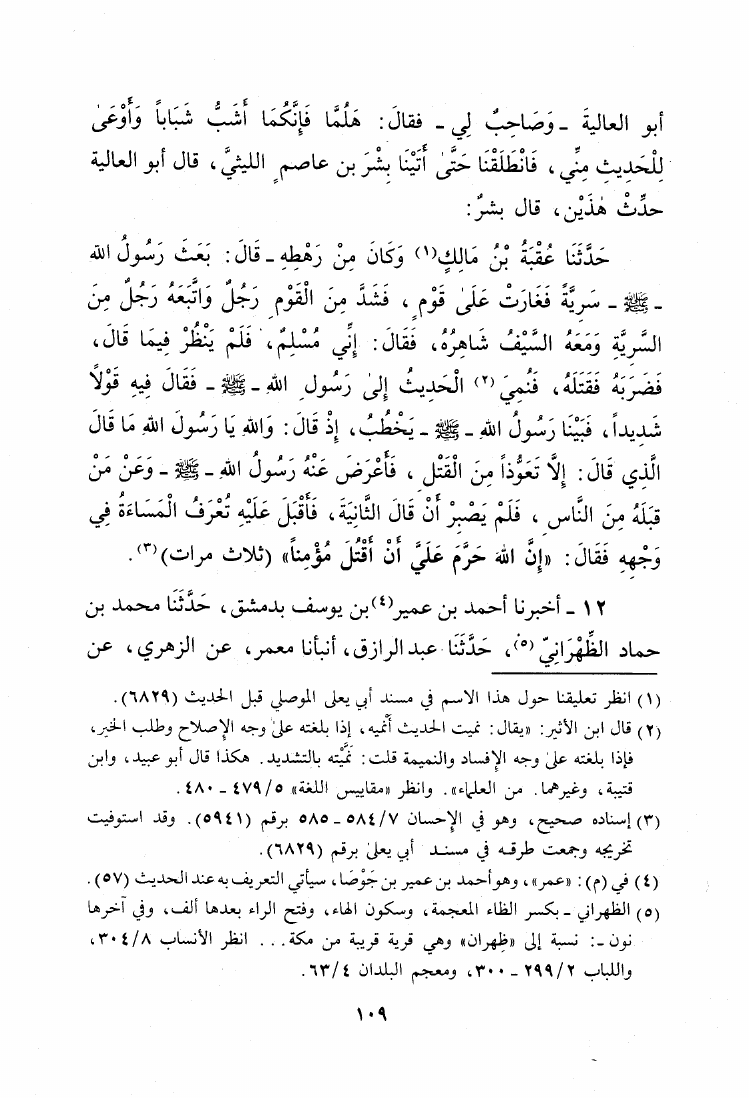 أبو العالية ـ وَصَاحِبٌ لِي ـ فقالَ: هَلُمَّا فَإِنَّكُمَا أَشَبُّ شَبَاباً وَأَوْعَىٰ
لِلْحَدِيثِ مِنِّي، فَانْطَلَقْنَا حَتَّىٰ أَتَيْنَا بِشْرَ بن عاصمٍ الليثيَّ، قال أبو العالية
حدِّثْ هٰذَيْن، قال بشرٌ:
حَدَّثَنَا عُقْبَةُ بْنُ مَالِكٍ(١) وَكَانَ مِنْ رَهْطِهِ ـ قَالَ: بَعَثَ رَسُولُ اللهِ
ـ ﷺ ـ سَرِيَّةً فَغَارَتْ عَلَىٰ قَوْمٍ، فَشَدَّ مِنَ الْقَوْمِ رَجُلٌ وَاتَّبَعَهُ رَجُلٌ مِنَ
السَّرِيَّةِ وَمَعَهُ السَّيْفُ شَاهِرُهُ، فَقَالَ: إِنِّي مُسْلِمٌ، فَلَمْ يَنْظُرْ فِيمَا قَالَ،
فَضَرَبَهُ فَقَتَلَهُ، فَنُمِيَ(٢) الْحَدِيثُ إِلىٰ رَسُولِ اللهِ ـ ﷺ ـ فَقَالَ فِيهِ قَوْلاً
شَدِيداً، فَبَيْنَا رَسُولُ اللهِ ـ ﷺ ـ يَخْطُبُ، إِذْ قَالَ: وَاللهِ يَا رَسُولَ اللهِ مَا قَالَ
الَّذِي قَالَ: إِلاَّ تَعَوُّذاً مِنَ الْقَتْلِ، فَأَعْرَضَ عَنْهُ رَسُولُ اللهِ ـ ﷺ ـ وَعَنْ مَنْ
قِبَلَهُ مِنَ النَّاسِ، فَلَمْ يَصْبِرْ أَنْ قَالَ الثَّانِيَةَ، فَأَقْبَلَ عَلَيْهِ تُعْرَفُ الْمَسَاءَةُ فِي
وَجْهِهِ فَقَالَ: «إِنَّ اللهَ حَرَّمَ عَلَيَّ أَنْ أَقْتُلَ مُؤْمِناً» (ثلاث مرات)(٣).
١٢ ـ أخبرنا أحمد بن عمير(٤) بن يوسف بدمشق، حَدَّثَنَا محمد بن
حماد الظِّهْرَانِيّ(٥)، حَدَّثَنَا عبد الرازق، أنبأنا معمر، عن الزهري، عن
(١) انظر تعليقنا حول هذا الاسم في مسند أبي يعلى الموصلي قبل الحديث (٦٨٢٩).
(٢) قال ابن الأثير: «يقال: نميت الحديث أَنميه، إذا بلغته علىٰ وجه الإصلاح وطلب الخير،
فإذا بلغته علىٰ وجه الإفساد والنميمة قلت: نَمَّيْته بالتشديد. هكذا قال أبو عبيد، وابن
قتيبة، وغيرهما. من العلماء». وانظر «مقاييس اللغة» ٤٧٩/٥ ـ ٤٨٠.
(٣) إسناده صحيح، وهو في الإحسان ٥٨٤/٧ ـ ٥٨٥ برقم (٥٩٤١). وقد استوفيت
تخريجه وجمعت طرقه في مسند أبي يعلىٰ برقم (٦٨٢٩).
(٤) في (م): «عمر»، وهو أحمد بن عمير بن جَوْصَا، سيأتي التعريف به عند الحديث (٥٧).
(٥) الظهراني ـ بكسر الظاء المعجمة، وسكون الهاء، وفتح الراء بعدها ألف، وفي آخرها
نون ـ: نسبة إلى «ظِهران» وهي قرية قريبة من مكة... انظر الأنساب ٣٠٤/٨،
واللباب ٢٩٩/٢ ـ ٣٠٠، ومعجم البلدان ٦٣/٤.
١٠٩